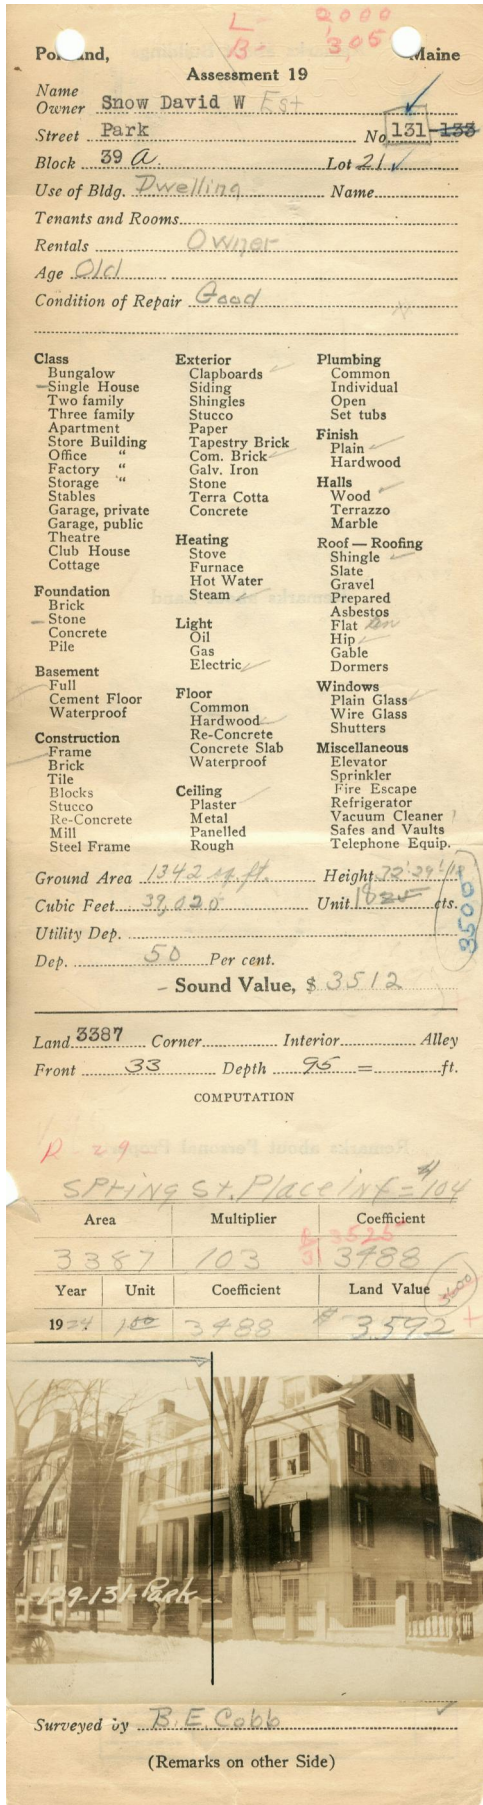 L- 2000
B- 1,305
Portland, Maine
Assessment 19
Name
Owner Snow David W Est
Street Park No. 131-133
Block 39 A. Lot 21
Use of Bldg. Dwelling Name
Tenants and Rooms
Rentals Owner
Age Old
Condition of Repair Good
Class
Bungalow
Single House
Two family
Three family
Apartment
Store Building
Office "
Factory "
Storage "
Stables
Garage, private
Garage, public
Theatre
Club House
Cottage
Foundation
Brick
Stone
Concrete
Pile
Basement
Full
Cement Floor
Waterproof
Construction
Frame
Brick
Tile
Blocks
Stucco
Re-Concrete
Mill
Steel Frame
Exterior
Clapboards
Siding
Shingles
Stucco
Paper
Tapestry Brick
Com. Brick
Galv. Iron
Stone
Terra Cotta
Concrete
Heating
Stove
Furnace
Hot Water
Steam
Light
Oil
Gas
Electric
Floor
Common
Hardwood
Re-Concrete
Concrete Slab
Waterproof
Ceiling
Plaster
Metal
Panelled
Rough
Plumbing
Common
Individual
Open
Set tubs
Finish
Plain
Hardwood
Halls
Wood
Terrazzo
Marble
Roof — Roofing
Shingle
Slate
Gravel
Prepared
Asbestos
Flat
Hip
Gable
Dormers
Windows
Plain Glass
Wire Glass
Shutters
Miscellaneous
Elevator
Sprinkler
Fire Escape
Refrigerator
Vacuum Cleaner
Safes and Vaults
Telephone Equip.
Ground Area 1342 sq. ft. Height
Cubic Feet 39,020 Unit 18 cts.
3500
Utility Dep.
Dep. 50 Per cent.
Sound Value, $ 3512
Land 3387 Corner Interior Alley
Front 33 Depth 95 = ft.
COMPUTATION
R 29
Spring St. Place inf = 104
Area Multiplier Coefficient
3525
3387 103 3488
Year Unit Coefficient Land Value 3600
1924 1.00 3488 $ 3592
129-131-Park
Surveyed by B. E. Cobb
(Remarks on other Side)